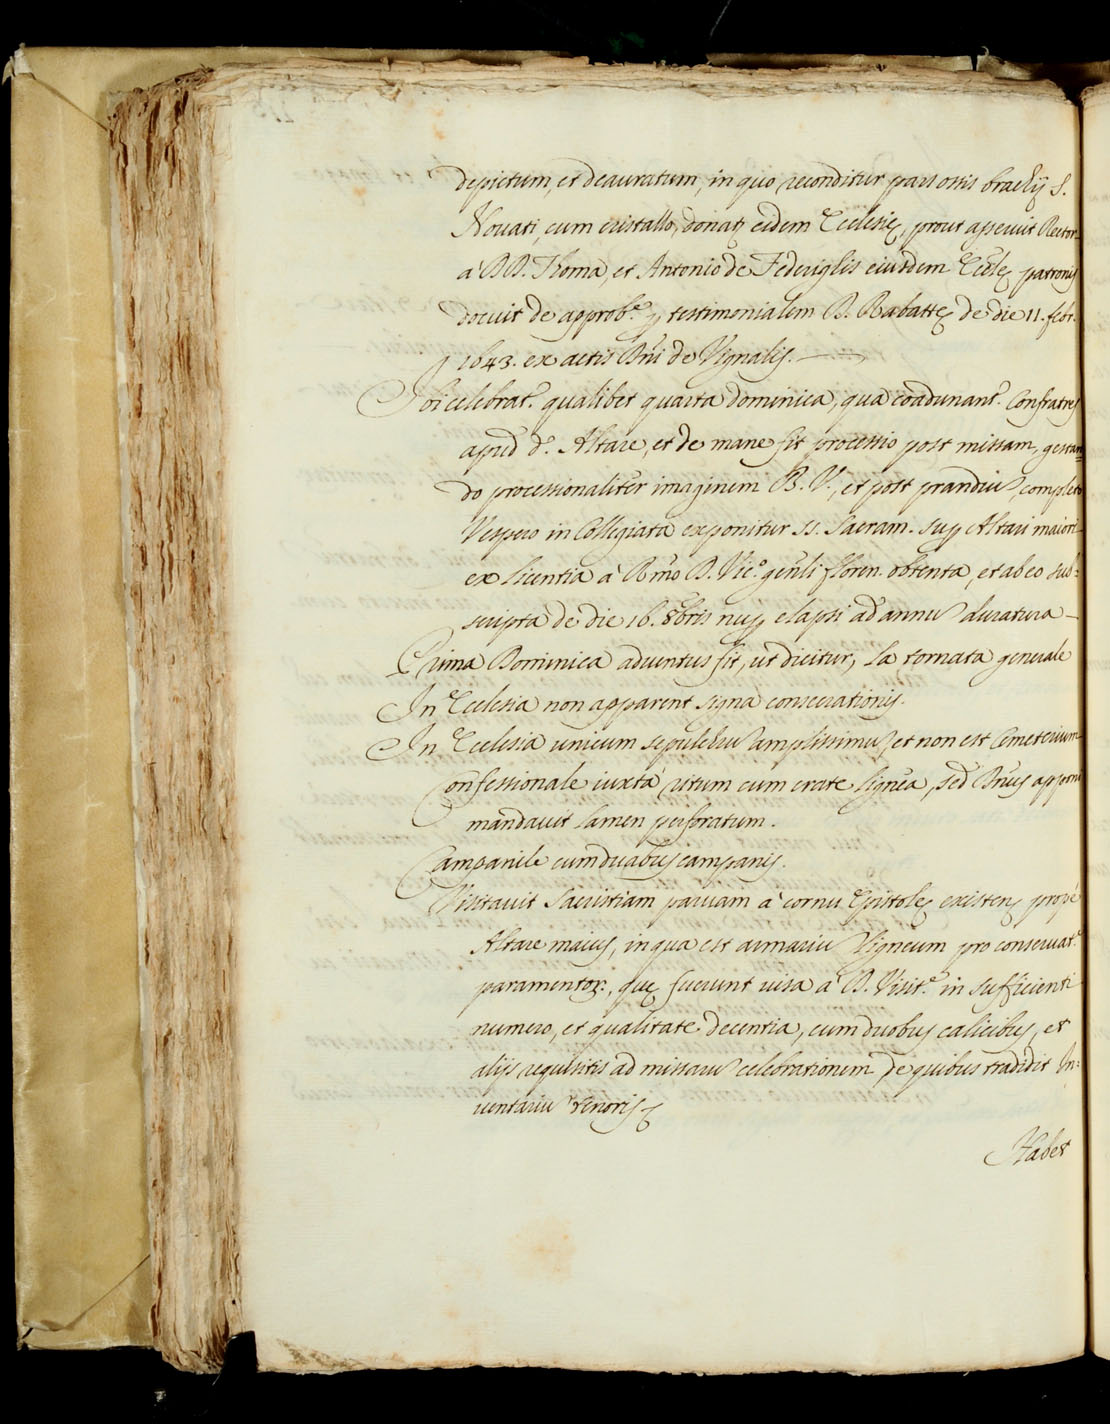 depictum, et deauratum, in quo reconditur pars ossis brachij S.
Novati, cum cristallo, donatę eidem Ecclesię, prout asseruit Rector
à DD. Thoma, et Antonio de Federiglis eiusdem Eccłę patronis
docuit de approb.ᵉ ꝑ testimonialem D. Rabattę de die 11. febr.
1643. ex actis Dn̄i de Vignalis.
Ibi celebrat.ʳ qualibet quarta dominica, qua coadunant.ʳ Confratres
apud d.ᵐ Altare, et de mane fit processio post missam, gestan
do processionaliter imaginem B. V., et post prandiū, completo
Vespero in Collegiata exponitur SS. Sacram. supꝑ Altari maiori
ex licentia à R̄mo D. Vic.º gen̄li floren. obtenta, et ab eo sub=
scripta de die 16. 8bris nupꝑ elapsi ad annū duratura –
Prima Dominica adventus fit, ut dicitur, la tornata generale
In Ecclesia non apparent signa consecrationis.
In Ecclesia unicum sepulchrū amplissimū, et non est Cemeterium
Confessionale iuxta ritum cum crate lignea, sed Dn̄us apponi
mandavit lamen perforatum.
Campanile cum duabus campanis.
Visitavit Sacristiam parvam à cornu Epistolę existenę propè
Altare maius, in qua est armariū ligneum pro conservat.ᵉ
paramentoꝝ., quę fuerunt visa à D. Visit.ᵉ in sufficienti
numero, et qualitate decentia, cum duobus calicibus, et
alijs requisitis ad missarū celebrationem de quibus tradidit In=
ventariū tenoris
Habet